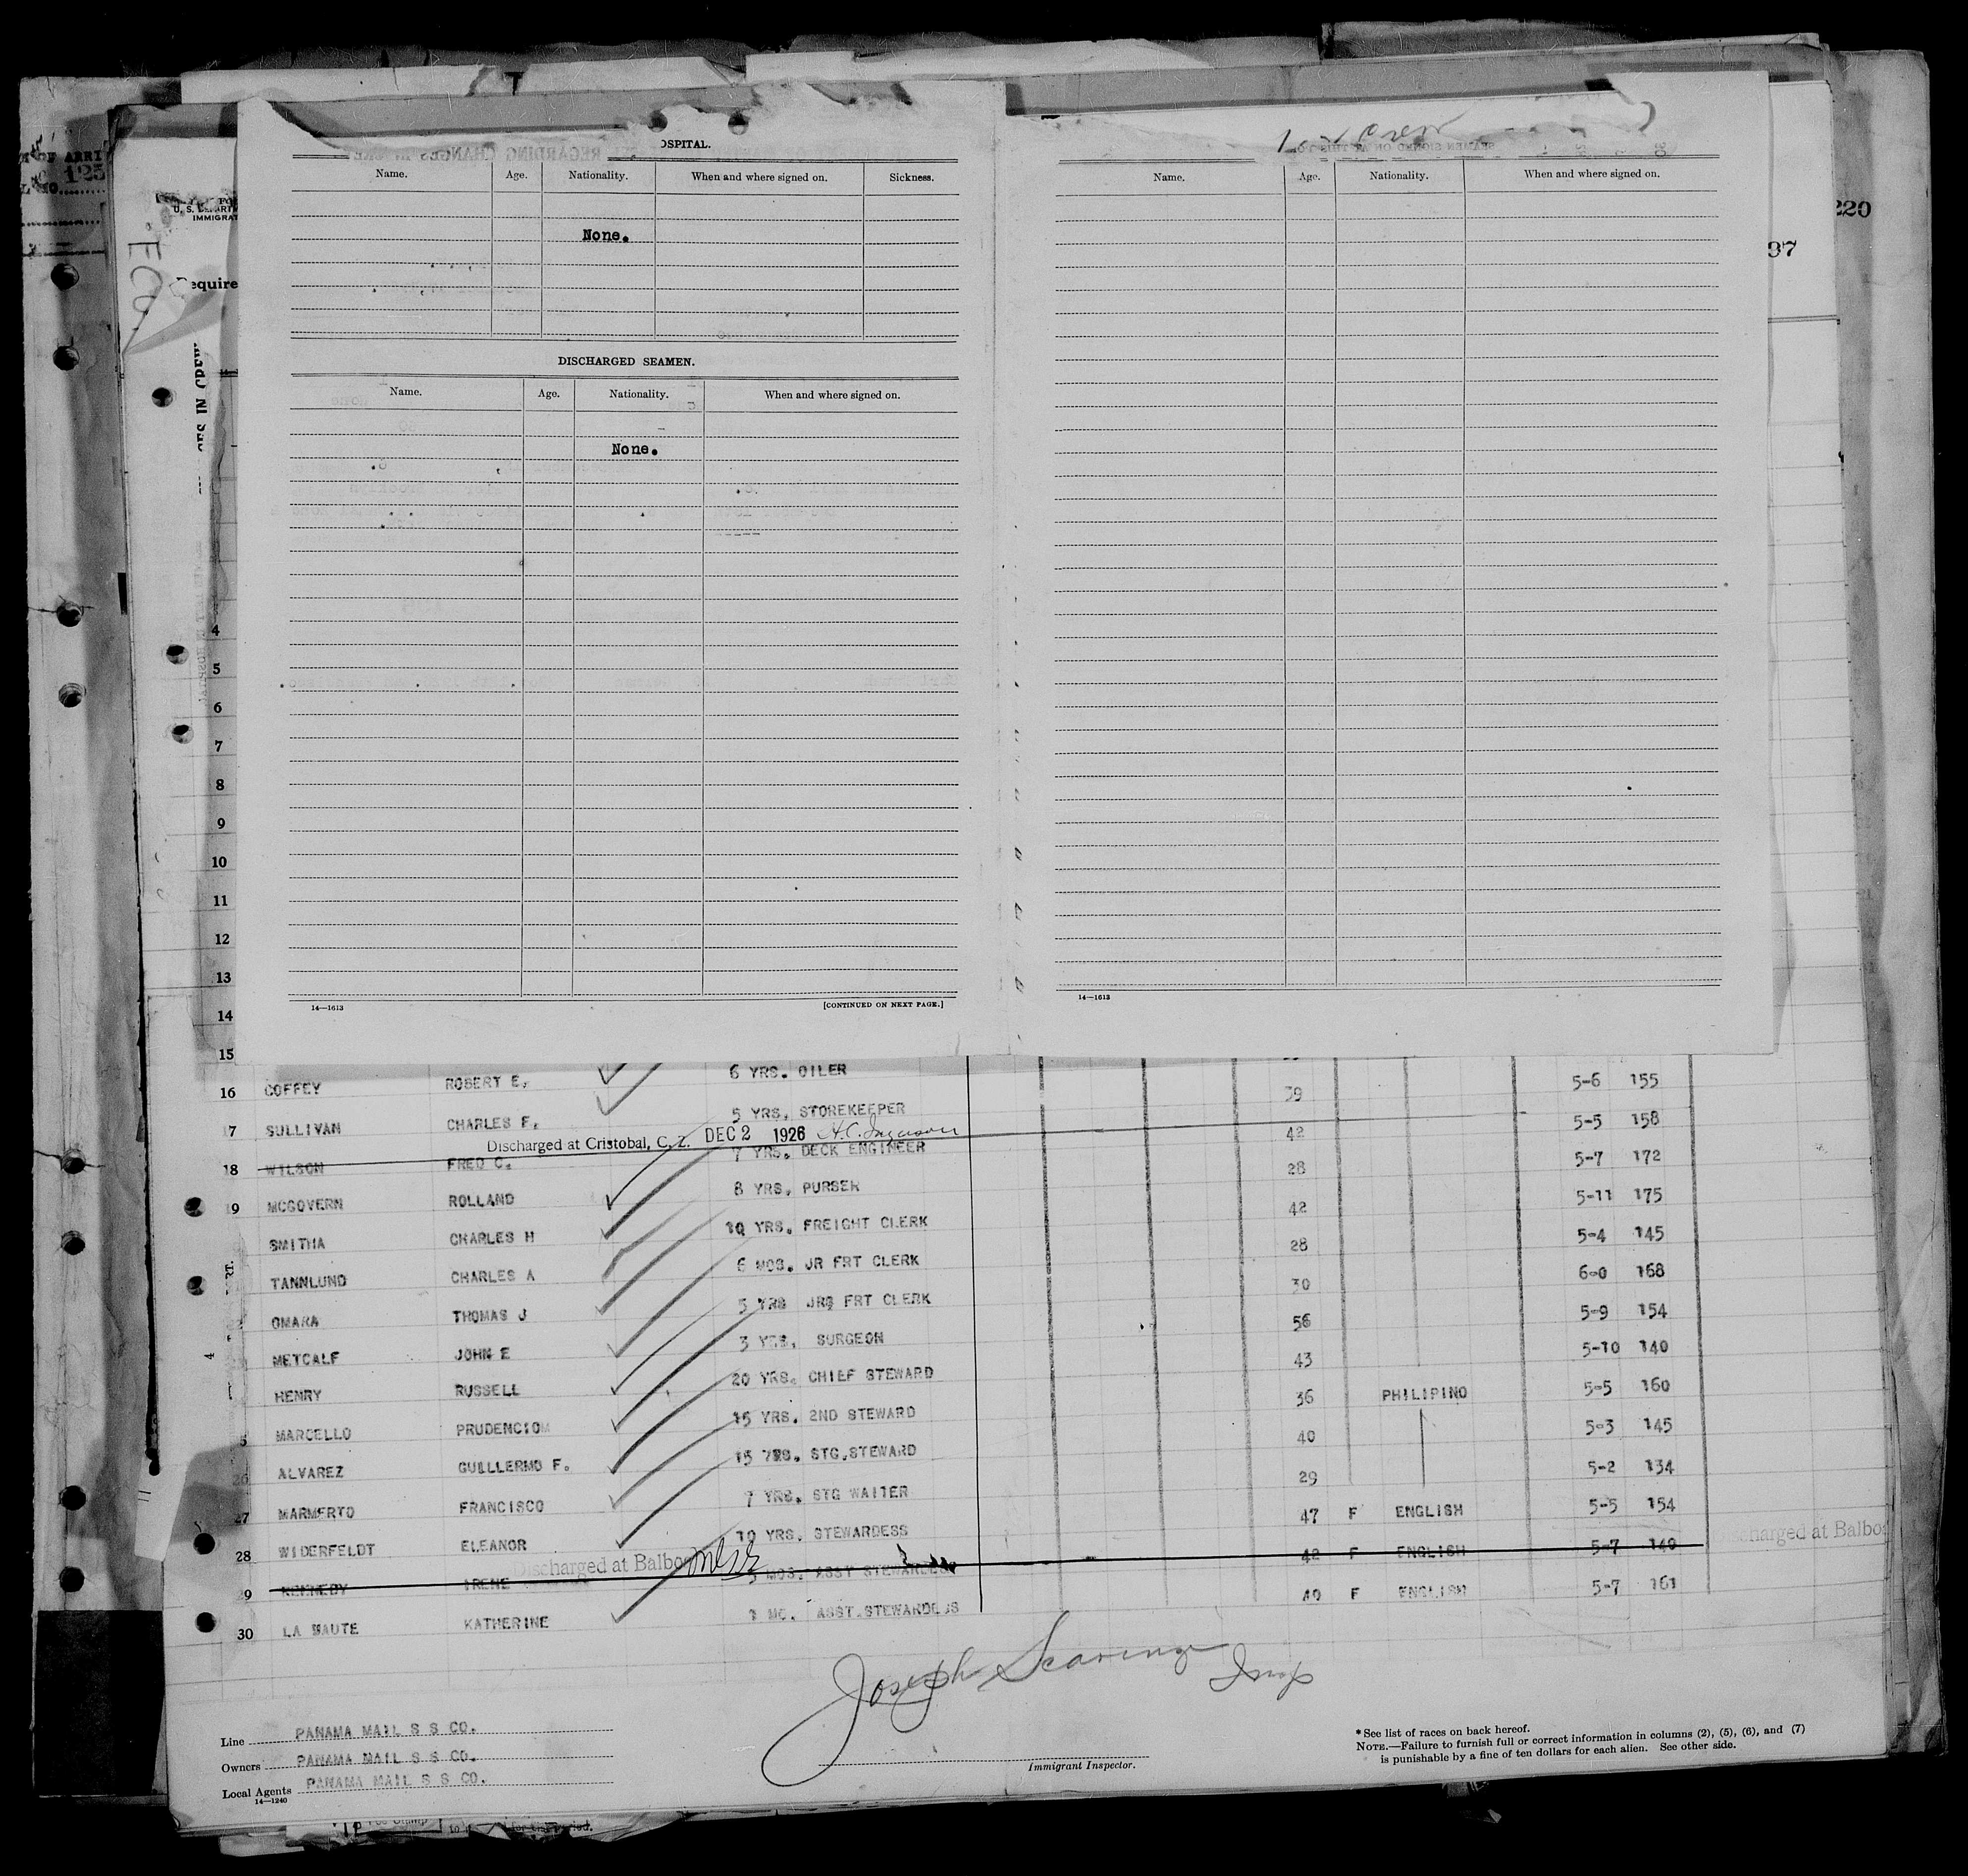 OSPITAL.
Name. Age. Nationality. When and where signed on. Sickness.
None.
DISCHARGED SEAMEN.
Name. Age. Nationality. When and where signed on.
None.
14—1613 [CONTINUED ON NEXT PAGE.]
Name. Age. Nationality. When and where signed on.
14—1613
125
220
37
equire
4
5
6
7
8
9
10
11
12
13
14
15
16 COFFEY ROBERT E. 6 YRS. OILER 39 5-6 155
17 SULLIVAN CHARLES F. 5 YRS. STOREKEEPER 42 5-5 158
Discharged at Cristobal, C. Z. DEC 2 1926
18 WILSON FRED C. 7 YRS. DECK ENGINEER 28 5-7 172
19 MCGOVERN ROLLAND 8 YRS. PURSER 42 5-11 175
SMITHA CHARLES H 10 YRS. FREIGHT CLERK 28 5-4 145
TANNLUND CHARLES A 6 MOS. JR FRT CLERK 30 6-0 168
OMARA THOMAS J 5 YRS JR FRT CLERK 56 5-9 154
METCALF JOHN E 3 YRS. SURGEON 43 5-10 140
HENRY RUSSELL 20 YRS. CHIEF STEWARD 36 PHILIPINO 5-5 160
5 MARCELLO PRUDENCIO 15 YRS. 2ND STEWARD 40 5-3 145
26 ALVAREZ GUILLERMO F. 15 YRS. STG.STEWARD 29 5-2 134
27 MARMERTO FRANCISCO 7 YRS. STG WAITER 47 F ENGLISH 5-5 154
28 WIDERFELDT ELEANOR 10 YRS. STEWARDESS 42 F ENGLISH 5-7 140
Discharged at Balbo
charged at Balbo
29 KENNEDY IRENE MOS. ASST STEWARDESS 40 F ENGLISH 5-7 161
30 LA HAUTE KATHERINE 1 MO. ASST.STEWARDESS
Joseph Insp
Line PANAMA MAIL S S CO.
Owners PANAMA MAIL S S CO.
Local Agents PANAMA MAIL S S CO.
14—1240
Immigrant Inspector.
* See list of races on back hereof.
NOTE.—Failure to furnish full or correct information in columns (2), (5), (6), and (7)
is punishable by a fine of ten dollars for each alien. See other side.